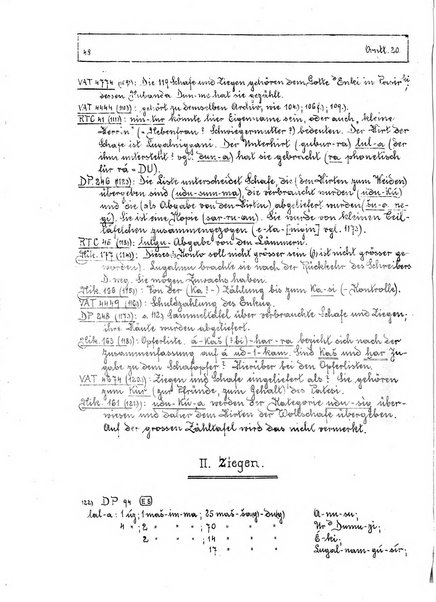 48 Orient. 20.
VAT 4774 (109): Die 119 Schafe und Ziegen gehören dem Gotte Enki in
dessen Nubanda Dun-me hat sie gezählt.
VAT 4444 (110): gehört zu demselben Archiv, wie 104); 106); 109).
RTC 41 (111): nin-tur könnte hier Eigenname sein, oder auch „kleine
Herrin" (= Nebenfrau? Schwiegermutter?) bedeuten. Der Hirt der
Schafe ist Lugalnigani. Der Unterhirt (gubur-ra) lul-a (der
ihm untersteht? vgl. dun-a) hat sie gebracht (ra phonetisch
für rá = DU).
DP 246 : Die Liste unterscheidet Schafe die (den Hirten zum Weiden)
übergeben sind (udu-sum-ma) die verbraucht wurden (udu-kú)
und die (als Abgabe von den Hirten) abgeliefert wurden (šu-a-
gi). Sie ist eine Kopie (sar-ru-am). Sie wurde von kleinen Teil-
täfelchen zusammengezogen (e-ta-[nigin] vgl. 117).
RTC 46 (118): lulgu-Abgabe von den Lämmern.
Nik. 177 : Dieses Konto soll nicht grösser sein (nicht grösser ge-
worden). Lugalmu brachte sie nach der Rückkehr des Schreibers
D. weg. Sie mögen Zuwachs haben.
Nik. 156 : Von der (Ka?-) Zählung bis zum Ka-si (-Kontrolle).
VAT 4449 : Schuldzahlung des Enkug.
DP 248 : s. 112) Sammeltäfel über verbrauchte Schafe und Ziegen;
ihre Häute wurden abgeliefert.
Nik. 163 (118): Opferliste. á-Kaš (? bi)-har-ra bezieht sich nach der
Zusammenfassung auf á ud-1-kam. Sind Kaš und har zu-
gabe zu dem Schafopfer? Hierüber bei den Opferlisten.
VAT 4674 (120): Ziegen und Schafe eingeliefert als? Sie gehören
zum Kur (zur Pfründe, zum Gehalt) des Patesi.
Nik. 161 (121): udu-Kù-a werden der Kategorie udu-sig über-
wiesen und daher dem Hirten der Wollschafe übergeben.
Auf der grossen Zähltafel wird das nicht vermerkt.
II. Ziegen.
122) DP 94
lal-a: 1 ùz; 1 maš-im-ma; 25 maš-sag-dug) A-nu-su;
4 " ; 2 " " ; 70 " " Ur-Dumu-zi;
2 " " ; 14 " " É-ki;
17 " " Lugal-nam-gú-sír;